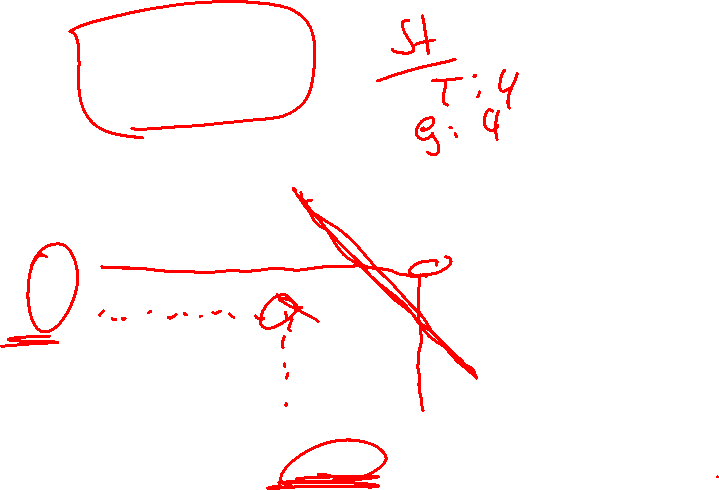 St
T: 4
g: 4